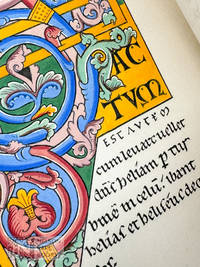 AC
TVM
EST AVTEM
cum leuare uellet
dn̄s heliam ꝑ tur
binē in celū. ibant
helias et heliseus de